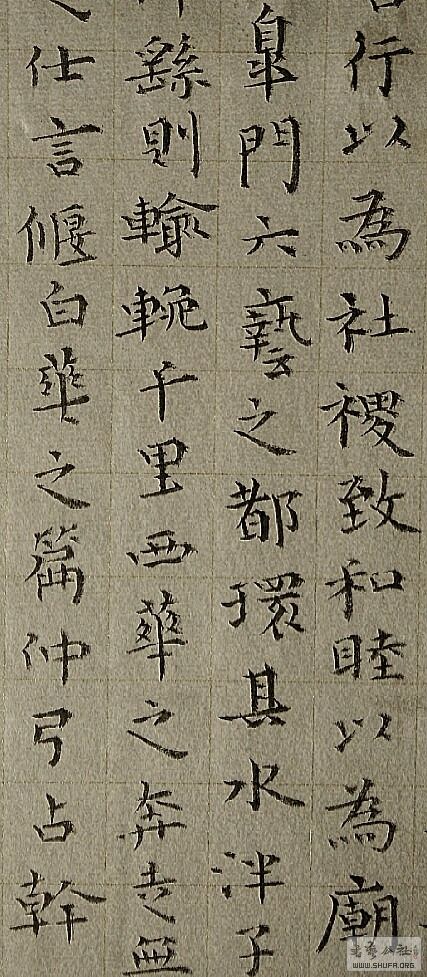 行以為社稷致和睦以為廟
皐門六藝之都環其水泮子
繇則輸輓千里西華之奔走無
仕言偃白華之篇仲弓占幹
書藝公社
WWW.SHUFA.ORG